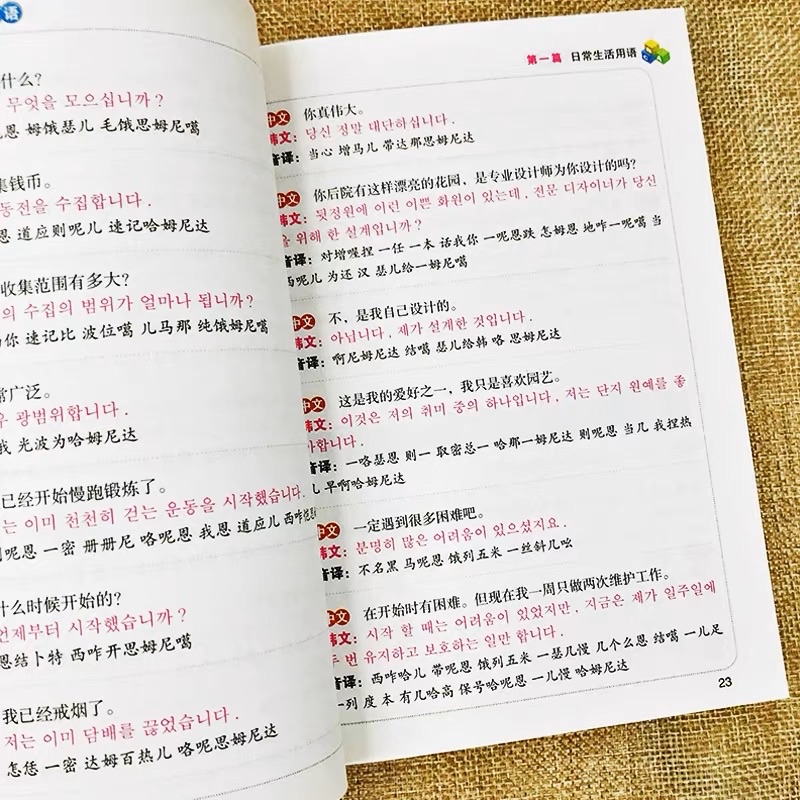 语
什么?
무엇을 모으십니까?
恩 姆饿瑟儿 毛饿思姆尼噶
集钱币。
동전을 수집합니다.
恩 道应则呢儿 速记哈姆尼达
收集范围有多大?
의 수집의 범위가 얼마나 됩니까?
你 速记比 波位噶 儿马那 纯饿姆尼噶
常广泛。
우 광범위합니다.
我 光波为哈姆尼达
已经开始慢跑锻炼了。
는 이미 천천히 걷는 운동을 시작했습니다.
呢恩 一密 册册尼 咯呢恩 我恩 道应儿 西咋
什么时候开始的?
언제부터 시작했습니까?
恩结卜特 西咋开思姆尼噶
我已经戒烟了。
저는 이미 담배를 끊었습니다.
怎恁 一密 达姆百热儿 咯呢思姆尼达
第一篇 日常生活用语
中文 你真伟大。
韩文: 당신 정말 대단하십니다.
音译: 当心 增马儿 带达那思姆尼达
中文 你后院有这样漂亮的花园，是专业设计师为你设计的吗?
韩文: 뒷정원에 이런 이쁜 화원이 있는데, 전문 디자이너가 당신
을 위해 한 설계입니까?
音译: 对增喔捏 一任 一本 话我你 一呢恩跌 怎姆恩 地咋一呢噶 当
西呢儿 为还 汉 瑟儿给一姆尼噶
中文 不，是我自己设计的。
韩文: 아닙니다. 제가 설계한 것입니다.
音译: 啊尼姆尼达 结噶 瑟儿给韩 咯 思姆尼达
中文 这是我的爱好之一，我只是喜欢园艺。
韩文: 이것은 저의 취미 중의 하나입니다, 저는 단지 원예를 좋
아합니다.
音译: 一咯瑟恩 则一 取密总一 哈那一姆尼达 则呢恩 当几 我捏热
儿 早啊哈姆尼达
中文 一定遇到很多困难吧。
韩文: 분명히 많은 어려움이 있으셨지요.
音译: 不名黑 马呢恩 饿列五米 一丝斜几吆
中文 在开始时有困难。但现在我一周只做两次维护工作。
韩文: 시작 할 때는 어려움이 있었지만, 지금은 제가 일주일에
두 번 유지하고 보호하는 일만 합니다.
音译: 西咋哈儿 带呢恩 饿列五米 一瑟儿慢 几个么恩 结噶 一儿足
一列 度 本 有几哈高 保号哈呢恩 一儿慢 哈姆尼达
23